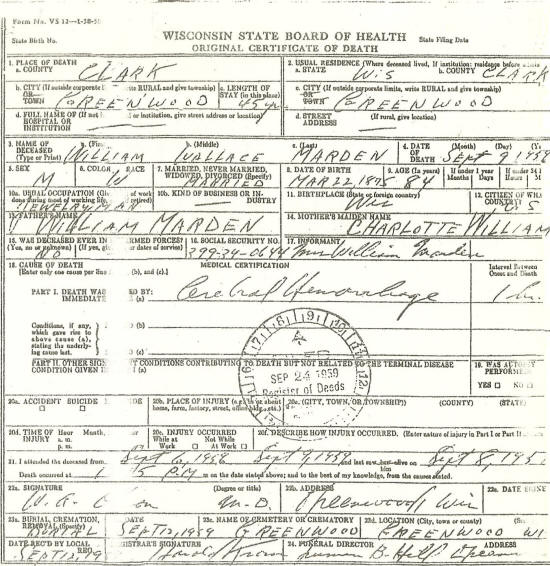 Form No. VS 12—1-58-50
WISCONSIN STATE BOARD OF HEALTH
State Birth No. ORIGINAL CERTIFICATE OF DEATH State Filing Date
1. PLACE OF DEATH 2. USUAL RESIDENCE (Where deceased lived, If institution: residence before
a. COUNTY CLARK a. STATE Wis b. COUNTY CLARK
b. CITY (If outside corporate RURAL and give township) c. LENGTH OF c. CITY (If outside corporate limits, write RURAL and give township)
OR STAY (in this place) OR
TOWN GREENWOOD 45 yr TOWN GREENWOOD
d. FULL NAME OF (If not or institution, give street address or location) d. STREET (If rural, give location)
HOSPITAL OR ADDRESS
INSTITUTION
3. NAME OF a. b. (Middle) c. (Last) 4. DATE (Month) (Day)
DECEASED OF
(Type or Print) WILLIAM WALLACE MARDEN DEATH Sept 9
5. SEX 6. COLOR RACE 7. MARRIED, NEVER MARRIED, 8. DATE OF BIRTH 9. AGE (In years If under 1 year
WIDOWED, DIVORCED (Specify) Months Days
M W MARRIED MAR 22 1875 84
10a. USUAL OCCUPATION of work 10b. KIND OF BUSINESS OR IN- 11. BIRTHPLACE (State or foreign country) 12. CITIZEN OF
done during most of working life, DUSTRY COUNTRY?
Wis U S
13. FATHER'S NAME 14. MOTHER'S MAIDEN NAME
WILLIAM MARDEN CHARLOTTE WILLIAM
15. WAS DECEASED EVER IN FORMED FORCES? 16. SOCIAL SECURITY NO. 17. INFORMANT
(Yes, no or unknown) (If yes, or dates of service)
NO 399-34-0644 Mrs William Marden
18. CAUSE OF DEATH MEDICAL CERTIFICATION Interval Between
[Enter only one cause per (b), and (c).] Onset and Death
PART I. DEATH WAS BY:
IMMEDIATE (a) Cerebral Hemorrhage
Conditions, if any, (b)
which gave rise to
above cause (a),
stating the underly-
ing cause last. (c)
PART II. OTHER CONDITIONS CONTRIBUTING TO DEATH BUT NOT RELATED TO THE TERMINAL DISEASE
CONDITION GIVEN
YES ☐ NO ☐
SEP 24 1959
Register of Deeds
20a. ACCIDENT SUICIDE 20b. PLACE OF INJURY (e.g., in or about 20c. (CITY, TOWN, OR TOWNSHIP) (COUNTY) (STATE)
home, farm, factory, street, office bldg., etc.)
20d. TIME OF Hour Month, 20e. INJURY OCCURRED 20f. DESCRIBE HOW INJURY OCCURRED. (Enter nature of injury in Part I or Part II
INJURY a. m. While at Not While
p. m. Work ☐ At Work ☐
21. I attended the deceased from Sept 6, 1959 Sept 9, 1959 and last saw him alive on Sept 8, 195
Death occurred at P.M on the date stated above; and to the best of my knowledge, from the causes stated.
22a. SIGNATURE (Degree or title) 22b. ADDRESS 22c. DATE
M.D. Greenwood Wis
23a. BURIAL, CREMATION, DATE 23c. NAME OF CEMETERY OR CREMATORY 23d. LOCATION (City, town or county)
REMOVAL (Specify)
BURIAL SEPT 12, 1959 GREENWOOD GREENWOOD WI
DATE REC'D BY LOCAL REG. 24. FUNERAL DIRECTOR ADDRESS
SIGNATURE